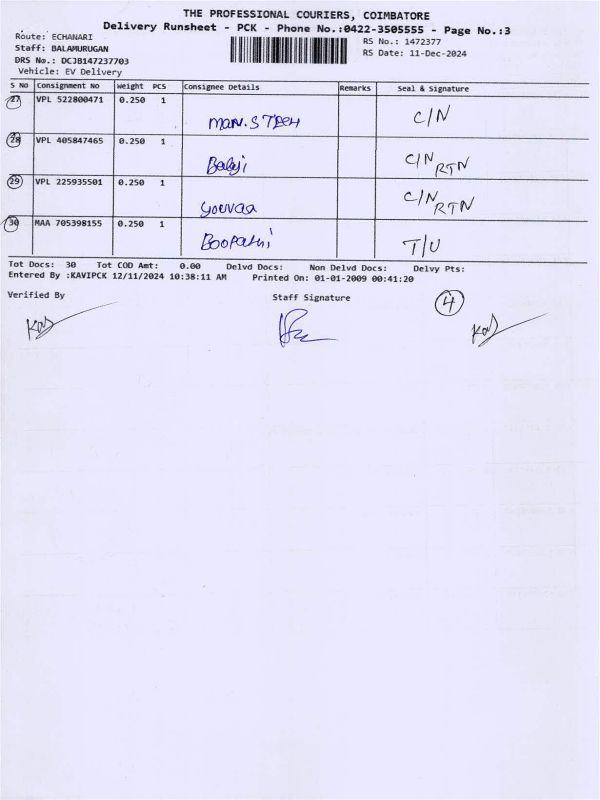 THE PROFESSIONAL COURIERS, COIMBATORE
Delivery Runsheet - PCK - Phone No.:0422-3505555 - Page No.:3
Route: ECHANARI
RS No.: 1472377
Staff: BALAMURUGAN
RS Date: 11-Dec-2024
DRS No.: DCJB147237703
Vehicle: EV Delivery
S No Consignment No Weight PCS Consignee Details Remarks Seal & Signature
27 VPL 522800471 0.250 1 C/N
28 VPL 405847465 0.250 1 Balaji C/N RTN
29 VPL 225935501 0.250 1 C/N RTN
30 MAA 705398155 0.250 1 Boopathi T/U
Tot Docs: 30 Tot COD Amt: 0.00 Delvd Docs: Non Delvd Docs: Delvy Pts:
Entered By :KAVIPCK 12/11/2024 10:38:11 AM Printed On: 01-01-2009 00:41:20
Verified By Staff Signature 4